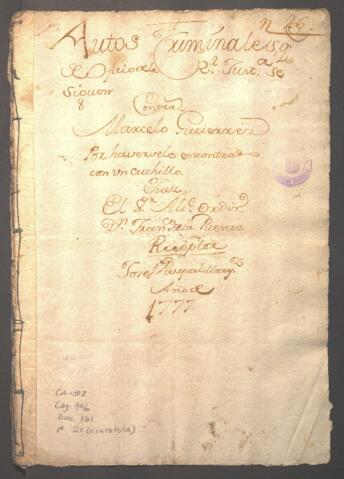 n 26.
Autos Criminales q
de oficio de Rl. Justa. se
Siguen
Contra
Marcelo Gutierrez
Por haversele encontrado
con un cuchillo.
Juez
El Sr. Alce. Ordino.
Dn. Franco. de la Puente
Receptor
Josef
Año de
1777
CA-JO2
Caj: 196
Doc 361